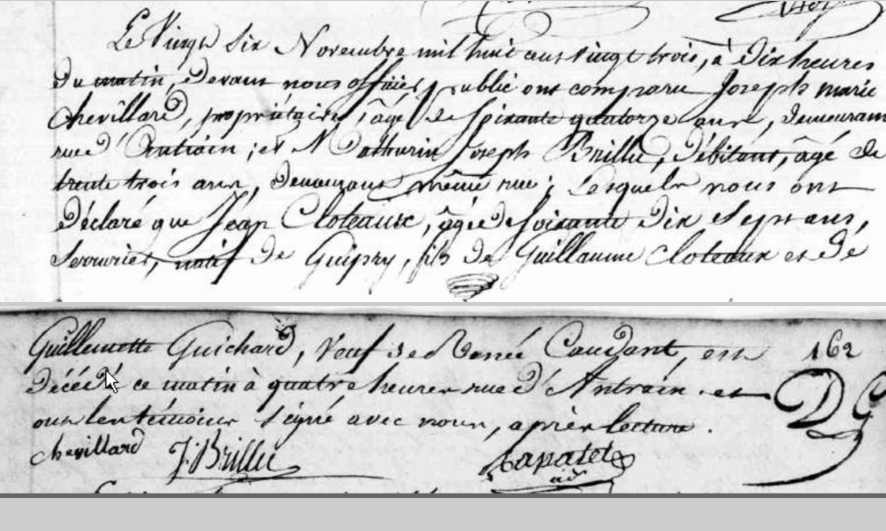 Le Vingt Six Novembre mil huit cent vingt trois, à Dix heures
du matin devant nous officier public ont comparu Joseph marie
Chevillard, propriétaire, âgé de soixante quatorze ans, demeurant
rue d'Antrain ; et Mathurin Joseph Brillié, Débitant, âgé de
trente trois ans, demeurant même rue ; Lesquels nous ont
Déclaré que Jean Cloteaux, âgé de soixante Dix Sept ans,
serrurier, natif de Guipry, fils de Guillaume Cloteaux et de
Guillemette Guichard, Veuf de Renée Caudant, est 162
Décédé ce matin à quatre heures rue d'Antrain et
ont les témoins signé avec nous, après lecture.
Chevillard J. Brillié